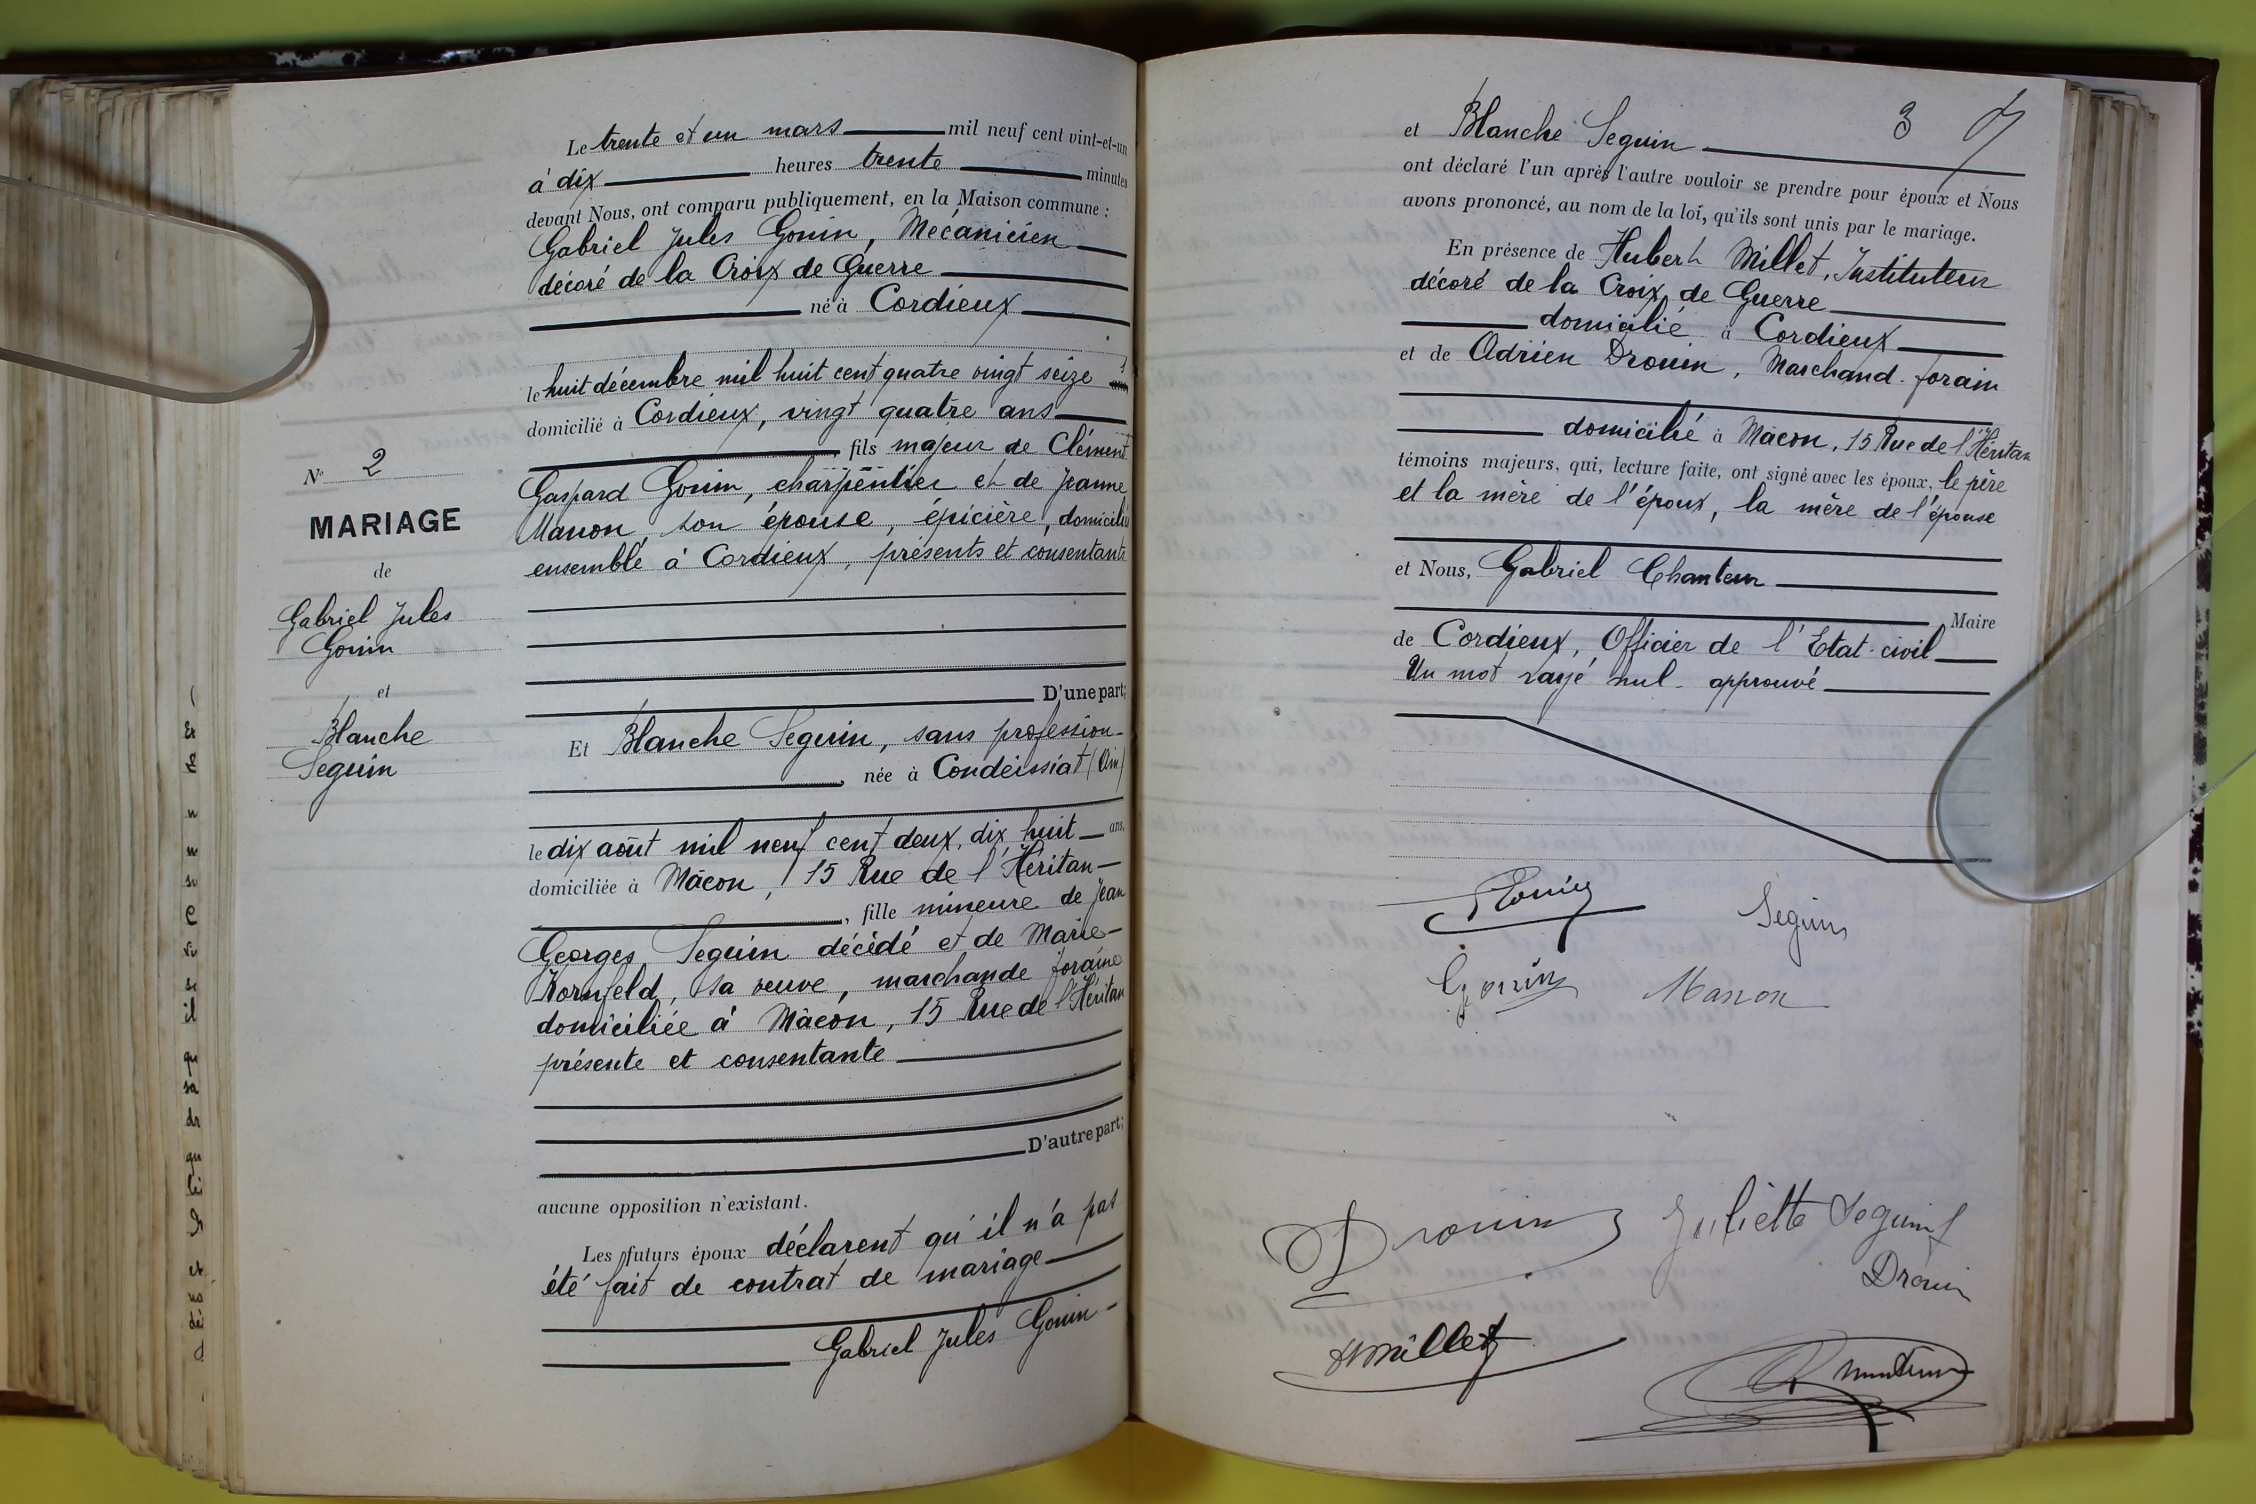 Le trente et un mars mil neuf cent vint-et-un
à dix heures trente minutes
devant Nous, ont comparu publiquement, en la Maison commune :
Gabriel Jules Gonin, Mécanicien
décoré de la Croix de Guerre
né à Cordieux
le huit décembre mil huit cent quatre vingt seize
domicilié à Cordieux, vingt quatre ans
fils majeur de Clément
Gaspard Gonin, charpentier et de Jeanne
Manon son épouse, épicière, domiciliés
ensemble à Cordieux, présents et consentants
D'une part;
Et Blanche Seguin, sans profession
, née à Condeissiat (Ain)
le dix août mil neuf cent deux, dix huit ans,
domiciliée à Mâcon, 15 Rue de l'Héritan
, fille mineure de Jean
Georges Seguin décédé et de Marie
Kornfeld, sa veuve, marchande foraine
domiciliée à Mâcon, 15 Rue de l'Héritan
présente et consentante
D'autre part;
aucune opposition n'existant.
Les futurs époux déclarent qu'il n'a pas
été fait de contrat de mariage
Gabriel Jules Gonin
N° 2
MARIAGE
de
Gabriel Jules
Gonin
et
Blanche
Seguin
3
et Blanche Seguin
ont déclaré l'un après l'autre vouloir se prendre pour époux et Nous
avons prononcé, au nom de la loi, qu'ils sont unis par le mariage.
En présence de Hubert Millet, Instituteur
décoré de la Croix de Guerre
domicilié à Cordieux
et de Adrien Drouin, Marchand-forain
domicilié à Mâcon, 15 Rue de l'Héritan
témoins majeurs, qui, lecture faite, ont signé avec les époux, le père
et la mère de l'époux, la mère de l'épouse
et Nous, Gabriel Chanteur
Maire
de Cordieux, Officier de l'Etat-civil
Un mot rayé nul - approuvé
Gonin
Seguin
Gonin
Manon
Drouin
Juliette Seguin f
Drouin
H Millet